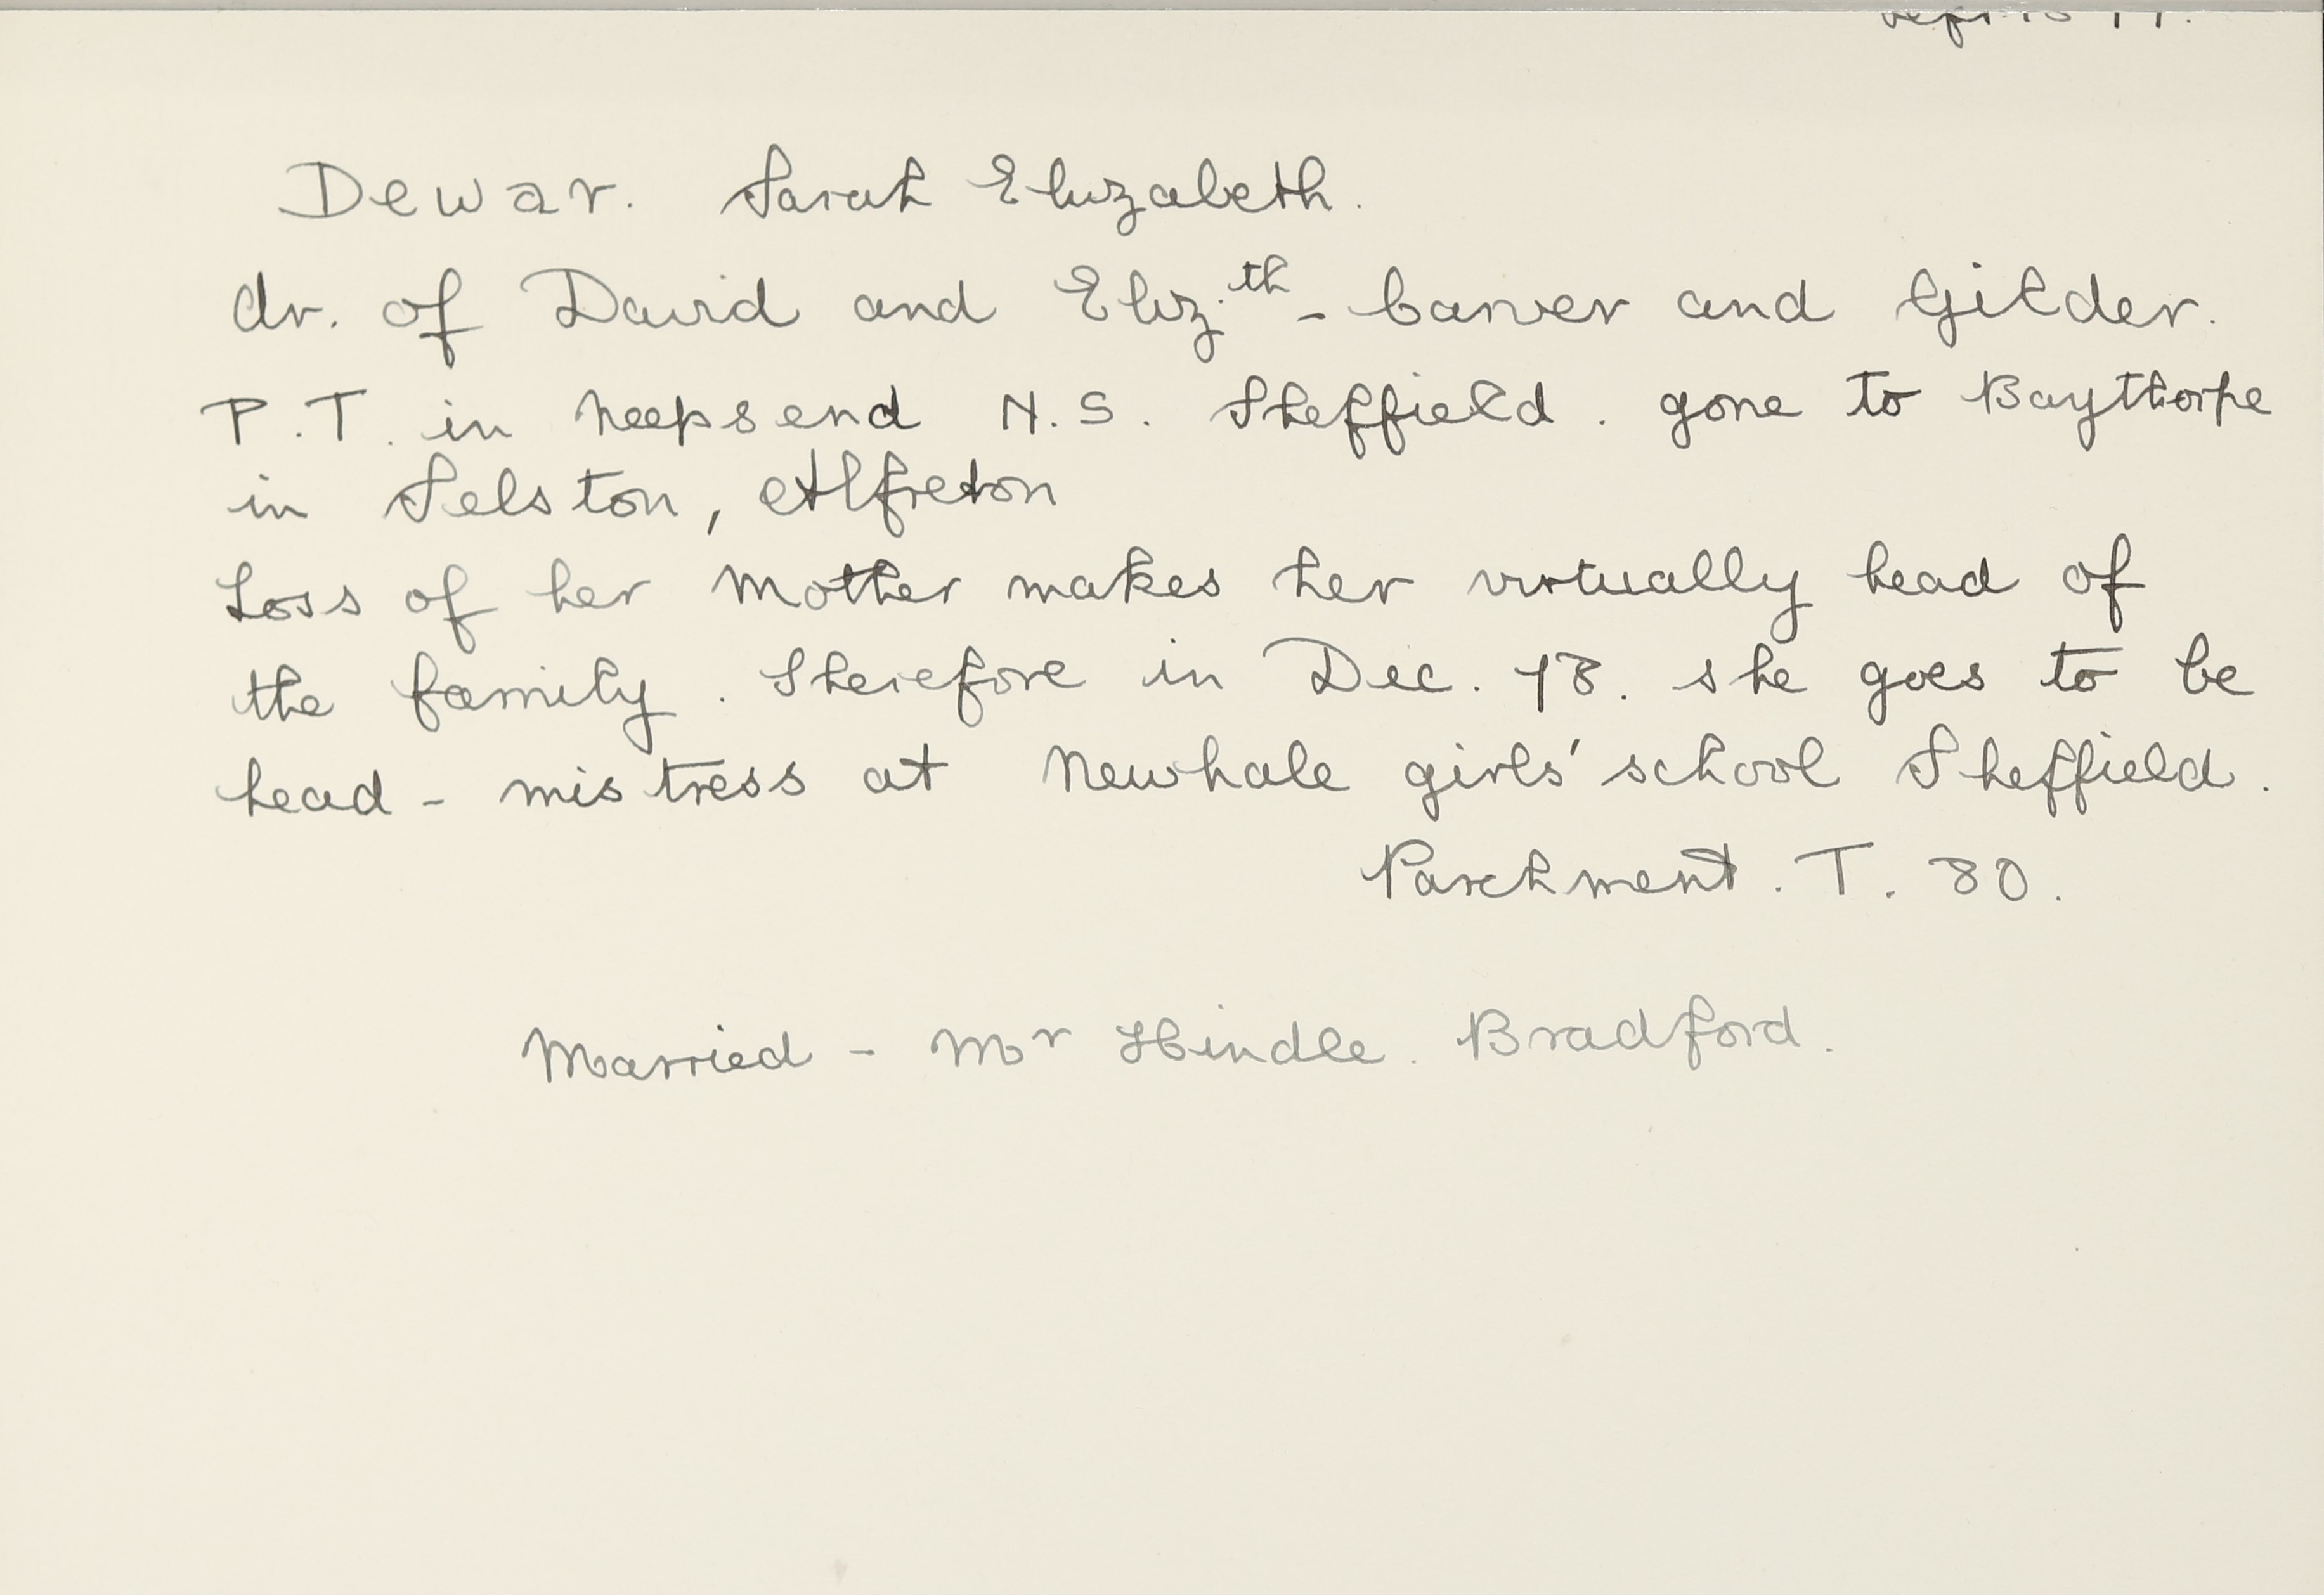 Dewar. Sarah Elizabeth.
dr. of David and Eliz.th - Carver and Gilder.
P.T. in Neepsend N.S. Sheffield. gone to Baythorpe
in Selston, Alfreton
Loss of her Mother makes her virtually head of
the family. Therefore in Dec. 78. she goes to be
head-mistress at Newhale girls' school Sheffield.
Parchment. T. 80.
Married - Mr Hindle. Bradford.